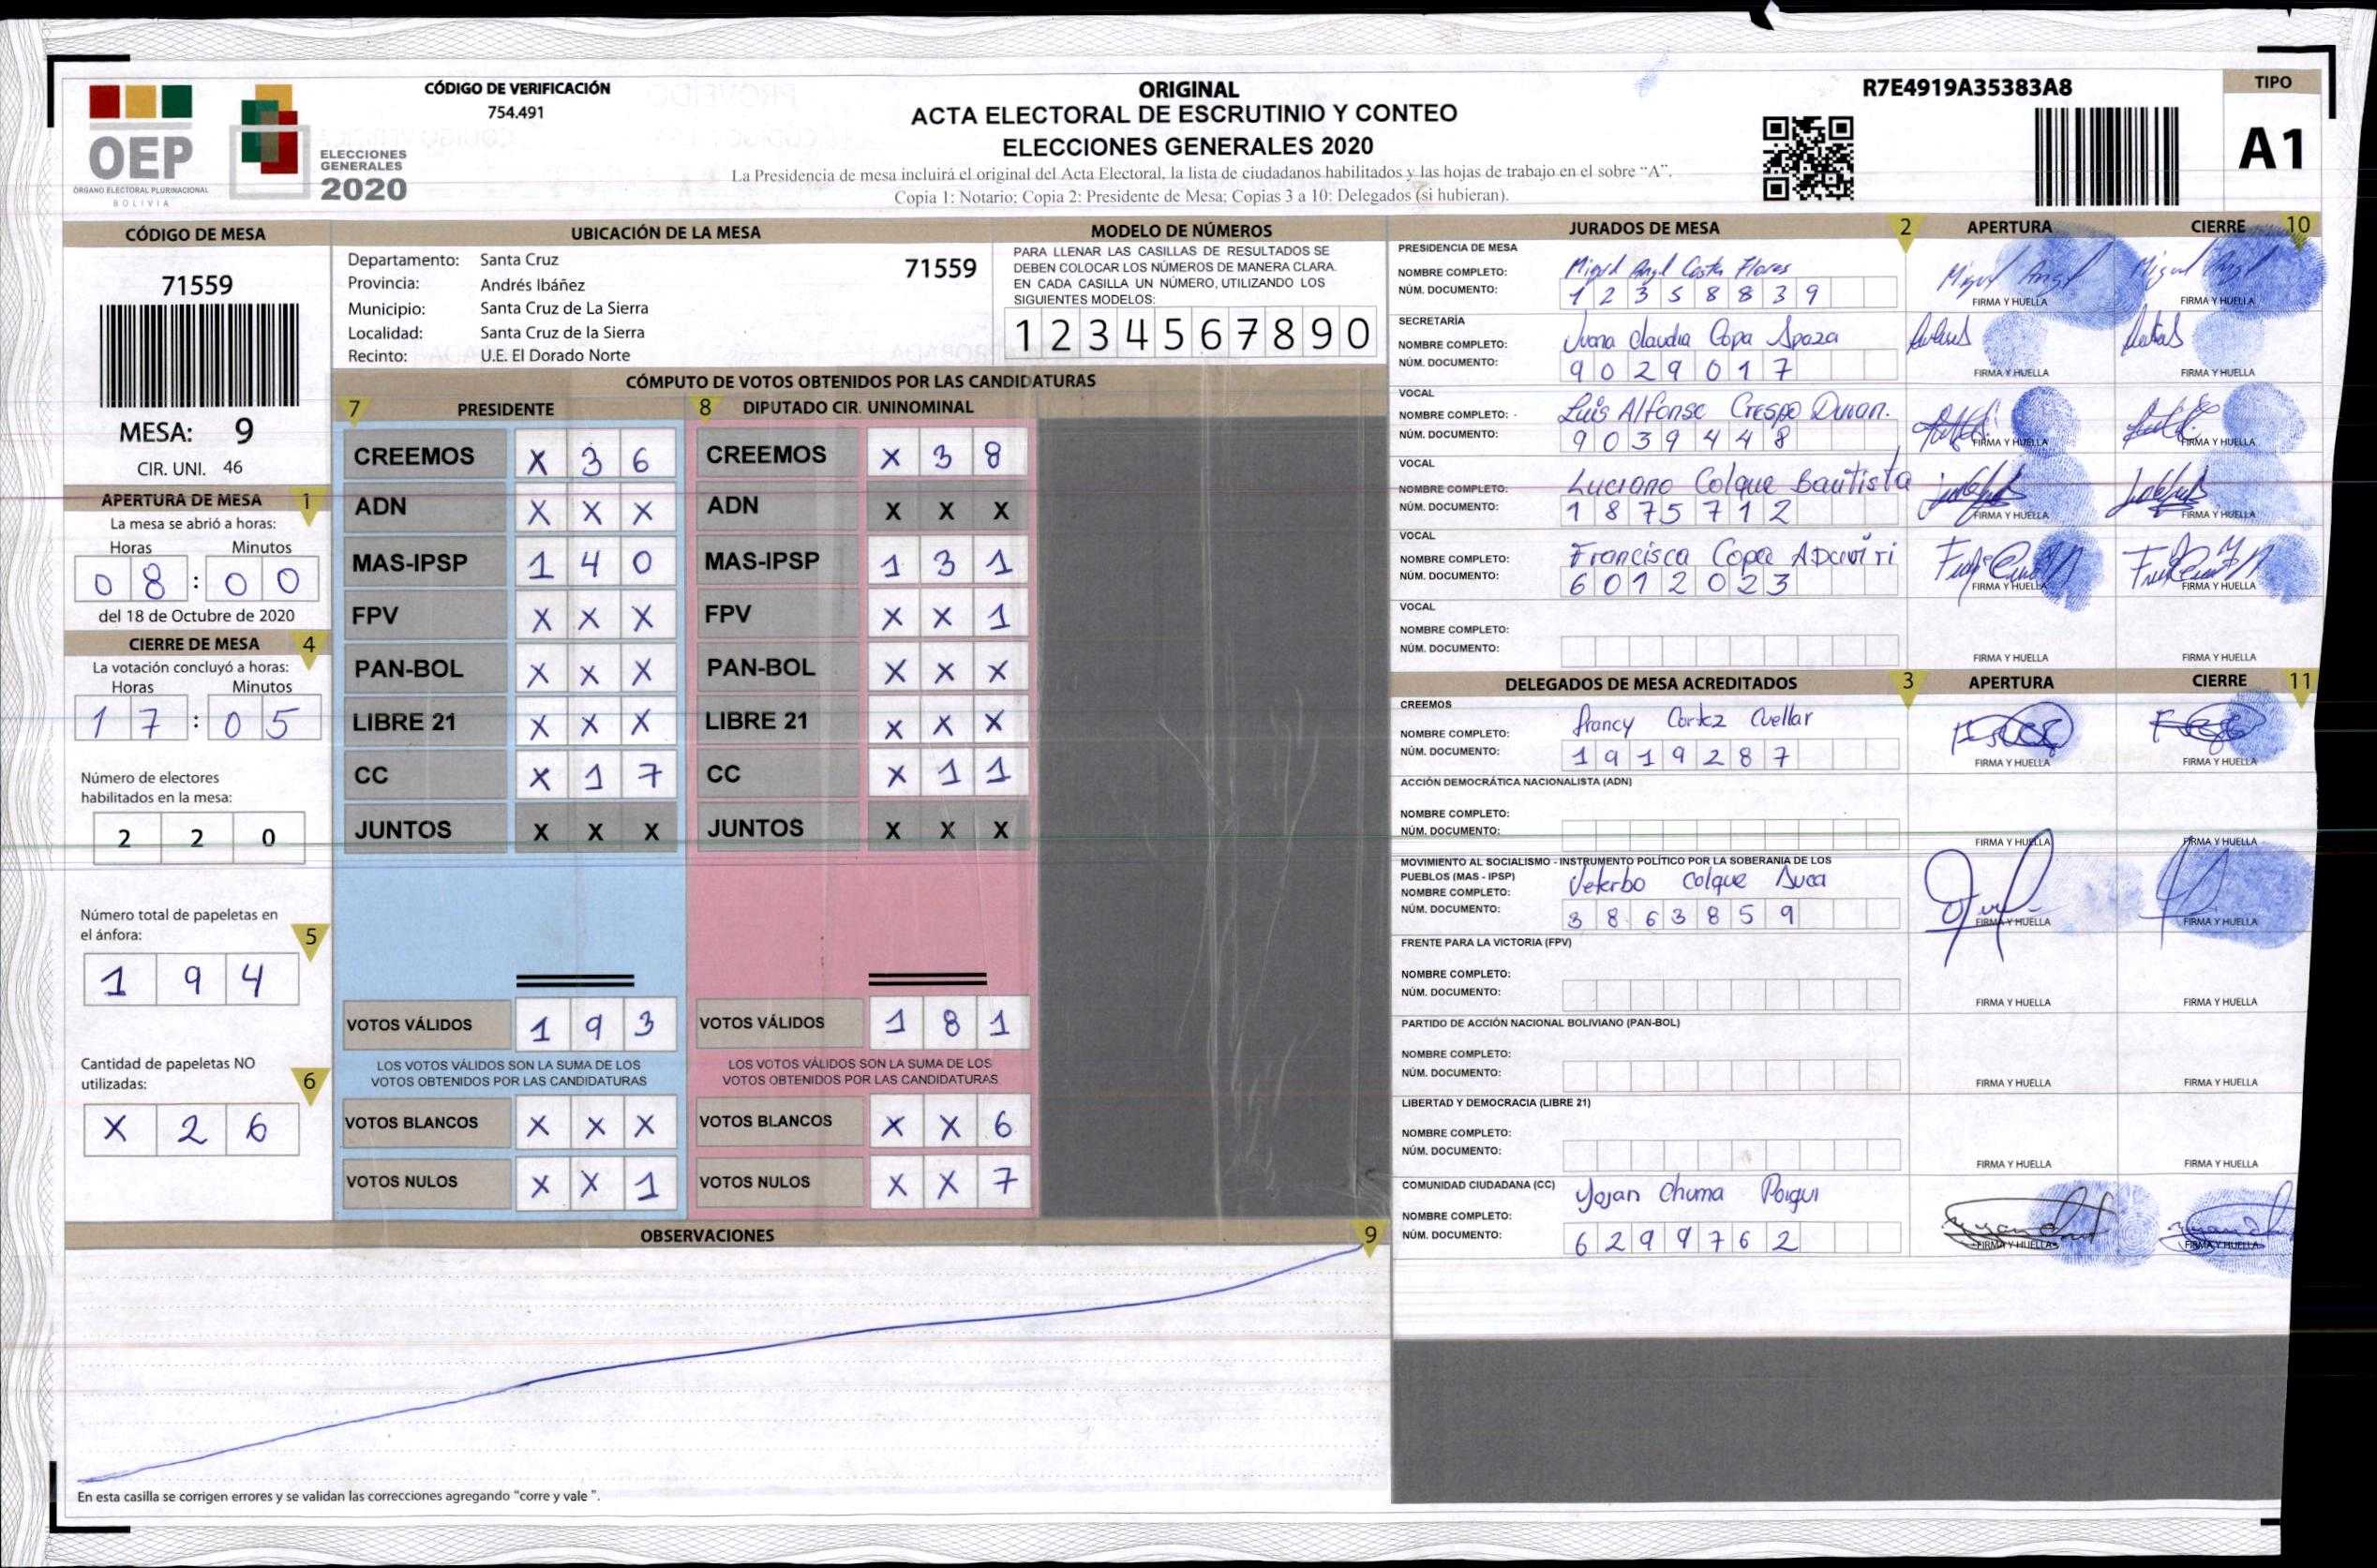 OEP
ÓRGANO ELECTORAL PLURINACIONAL
BOLIVIA
ELECCIONES
GENERALES
2020
CÓDIGO DE VERIFICACIÓN
754.491
ORIGINAL
ACTA ELECTORAL DE ESCRUTINIO Y CONTEO
ELECCIONES GENERALES 2020
La Presidencia de mesa incluirá el original del Acta Electoral, la lista de ciudadanos habilitados y las hojas de trabajo en el sobre "A".
Copia 1: Notario; Copia 2: Presidente de Mesa; Copias 3 a 10: Delegados (si hubieran).
R7E4919A35383A8
TIPO
A1
CÓDIGO DE MESA
71559
MESA: 9
CIR. UNI. 46
APERTURA DE MESA 1
La mesa se abrió a horas:
Horas Minutos
0 8 : 0 0
del 18 de Octubre de 2020
CIERRE DE MESA 4
La votación concluyó a horas:
Horas Minutos
1 7 : 0 5
Número de electores
habilitados en la mesa:
2 2 0
Número total de papeletas en
el ánfora: 5
1 9 4
Cantidad de papeletas NO
utilizadas: 6
X 2 6
UBICACIÓN DE LA MESA
Departamento: Santa Cruz 71559
Provincia: Andrés Ibáñez
Municipio: Santa Cruz de La Sierra
Localidad: Santa Cruz de la Sierra
Recinto: U.E. El Dorado Norte
MODELO DE NÚMEROS
PARA LLENAR LAS CASILLAS DE RESULTADOS SE
DEBEN COLOCAR LOS NÚMEROS DE MANERA CLARA.
EN CADA CASILLA UN NÚMERO, UTILIZANDO LOS
SIGUIENTES MODELOS:
1 2 3 4 5 6 7 8 9 0
CÓMPUTO DE VOTOS OBTENIDOS POR LAS CANDIDATURAS
7 PRESIDENTE 8 DIPUTADO CIR. UNINOMINAL
CREEMOS X 3 6 CREEMOS X 3 8
ADN X X X ADN X X X
MAS-IPSP 1 4 0 MAS-IPSP 1 3 1
FPV X X X FPV X X 1
PAN-BOL X X X PAN-BOL X X X
LIBRE 21 X X X LIBRE 21 X X X
CC X 1 7 CC X 1 1
JUNTOS X X X JUNTOS X X X
VOTOS VÁLIDOS 1 9 3 VOTOS VÁLIDOS 1 8 1
LOS VOTOS VÁLIDOS SON LA SUMA DE LOS LOS VOTOS VÁLIDOS SON LA SUMA DE LOS
VOTOS OBTENIDOS POR LAS CANDIDATURAS VOTOS OBTENIDOS POR LAS CANDIDATURAS
VOTOS BLANCOS X X X VOTOS BLANCOS X X 6
VOTOS NULOS X X 1 VOTOS NULOS X X 7
OBSERVACIONES 9
En esta casilla se corrigen errores y se validan las correcciones agregando "corre y vale ".
JURADOS DE MESA 2 APERTURA CIERRE 10
PRESIDENCIA DE MESA
NOMBRE COMPLETO: Miguel Angel Costa Flores
NÚM. DOCUMENTO: 1 2 3 5 8 8 3 9
FIRMA Y HUELLA FIRMA Y HUELLA
SECRETARÍA
NOMBRE COMPLETO: Juana Claudia Copa Apaza
NÚM. DOCUMENTO: 9 0 2 9 0 1 7
FIRMA Y HUELLA FIRMA Y HUELLA
VOCAL
NOMBRE COMPLETO: Luis Alfonso Crespo Duran.
NÚM. DOCUMENTO: 9 0 3 9 4 4 8
FIRMA Y HUELLA FIRMA Y HUELLA
VOCAL
NOMBRE COMPLETO: Luciano Colque Bautista
NÚM. DOCUMENTO: 1 8 7 5 7 1 2
FIRMA Y HUELLA FIRMA Y HUELLA
VOCAL
NOMBRE COMPLETO: Francisca Copa
NÚM. DOCUMENTO: 6 0 1 2 0 2 3
FIRMA Y HUELLA FIRMA Y HUELLA
VOCAL
NOMBRE COMPLETO:
NÚM. DOCUMENTO:
FIRMA Y HUELLA FIRMA Y HUELLA
DELEGADOS DE MESA ACREDITADOS 3 APERTURA CIERRE 11
CREEMOS
NOMBRE COMPLETO: Cortez Cuellar
NÚM. DOCUMENTO: 1 9 1 9 2 8 7
FIRMA Y HUELLA FIRMA Y HUELLA
ACCIÓN DEMOCRÁTICA NACIONALISTA (ADN)
NOMBRE COMPLETO:
NÚM. DOCUMENTO:
FIRMA Y HUELLA FIRMA Y HUELLA
MOVIMIENTO AL SOCIALISMO - INSTRUMENTO POLÍTICO POR LA SOBERANIA DE LOS
PUEBLOS (MAS - IPSP)
NOMBRE COMPLETO: Veterbo Colque
NÚM. DOCUMENTO: 3 8 6 3 8 5 9
FIRMA Y HUELLA FIRMA Y HUELLA
FRENTE PARA LA VICTORIA (FPV)
NOMBRE COMPLETO:
NÚM. DOCUMENTO:
FIRMA Y HUELLA FIRMA Y HUELLA
PARTIDO DE ACCIÓN NACIONAL BOLIVIANO (PAN-BOL)
NOMBRE COMPLETO:
NÚM. DOCUMENTO:
FIRMA Y HUELLA FIRMA Y HUELLA
LIBERTAD Y DEMOCRACIA (LIBRE 21)
NOMBRE COMPLETO:
NÚM. DOCUMENTO:
FIRMA Y HUELLA FIRMA Y HUELLA
COMUNIDAD CIUDADANA (CC)
NOMBRE COMPLETO: Yojan Chuma
NÚM. DOCUMENTO: 6 2 9 9 7 6 2
FIRMA Y HUELLA FIRMA Y HUELLA